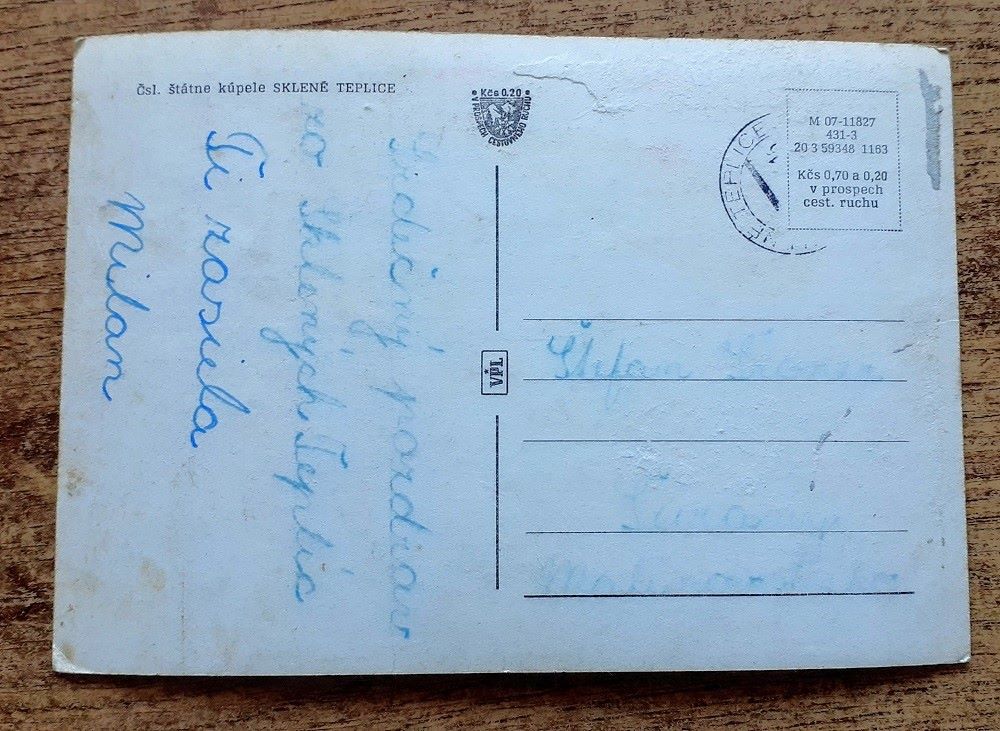 Čsl. štátne kúpele SKLENÉ TEPLICE
Kčs 0.20
V PROSPECH CESTOVNÉHO RUCHU
M 07-11827
431-3
20 3 59348 1163
Kčs 0,70 a 0,20
v prospech
cest. ruchu
NÉ TEPLICE
Srdečný pozdrav
zo Sklených Teplíc
Ti zasiela
Milan
VPL
Štefan